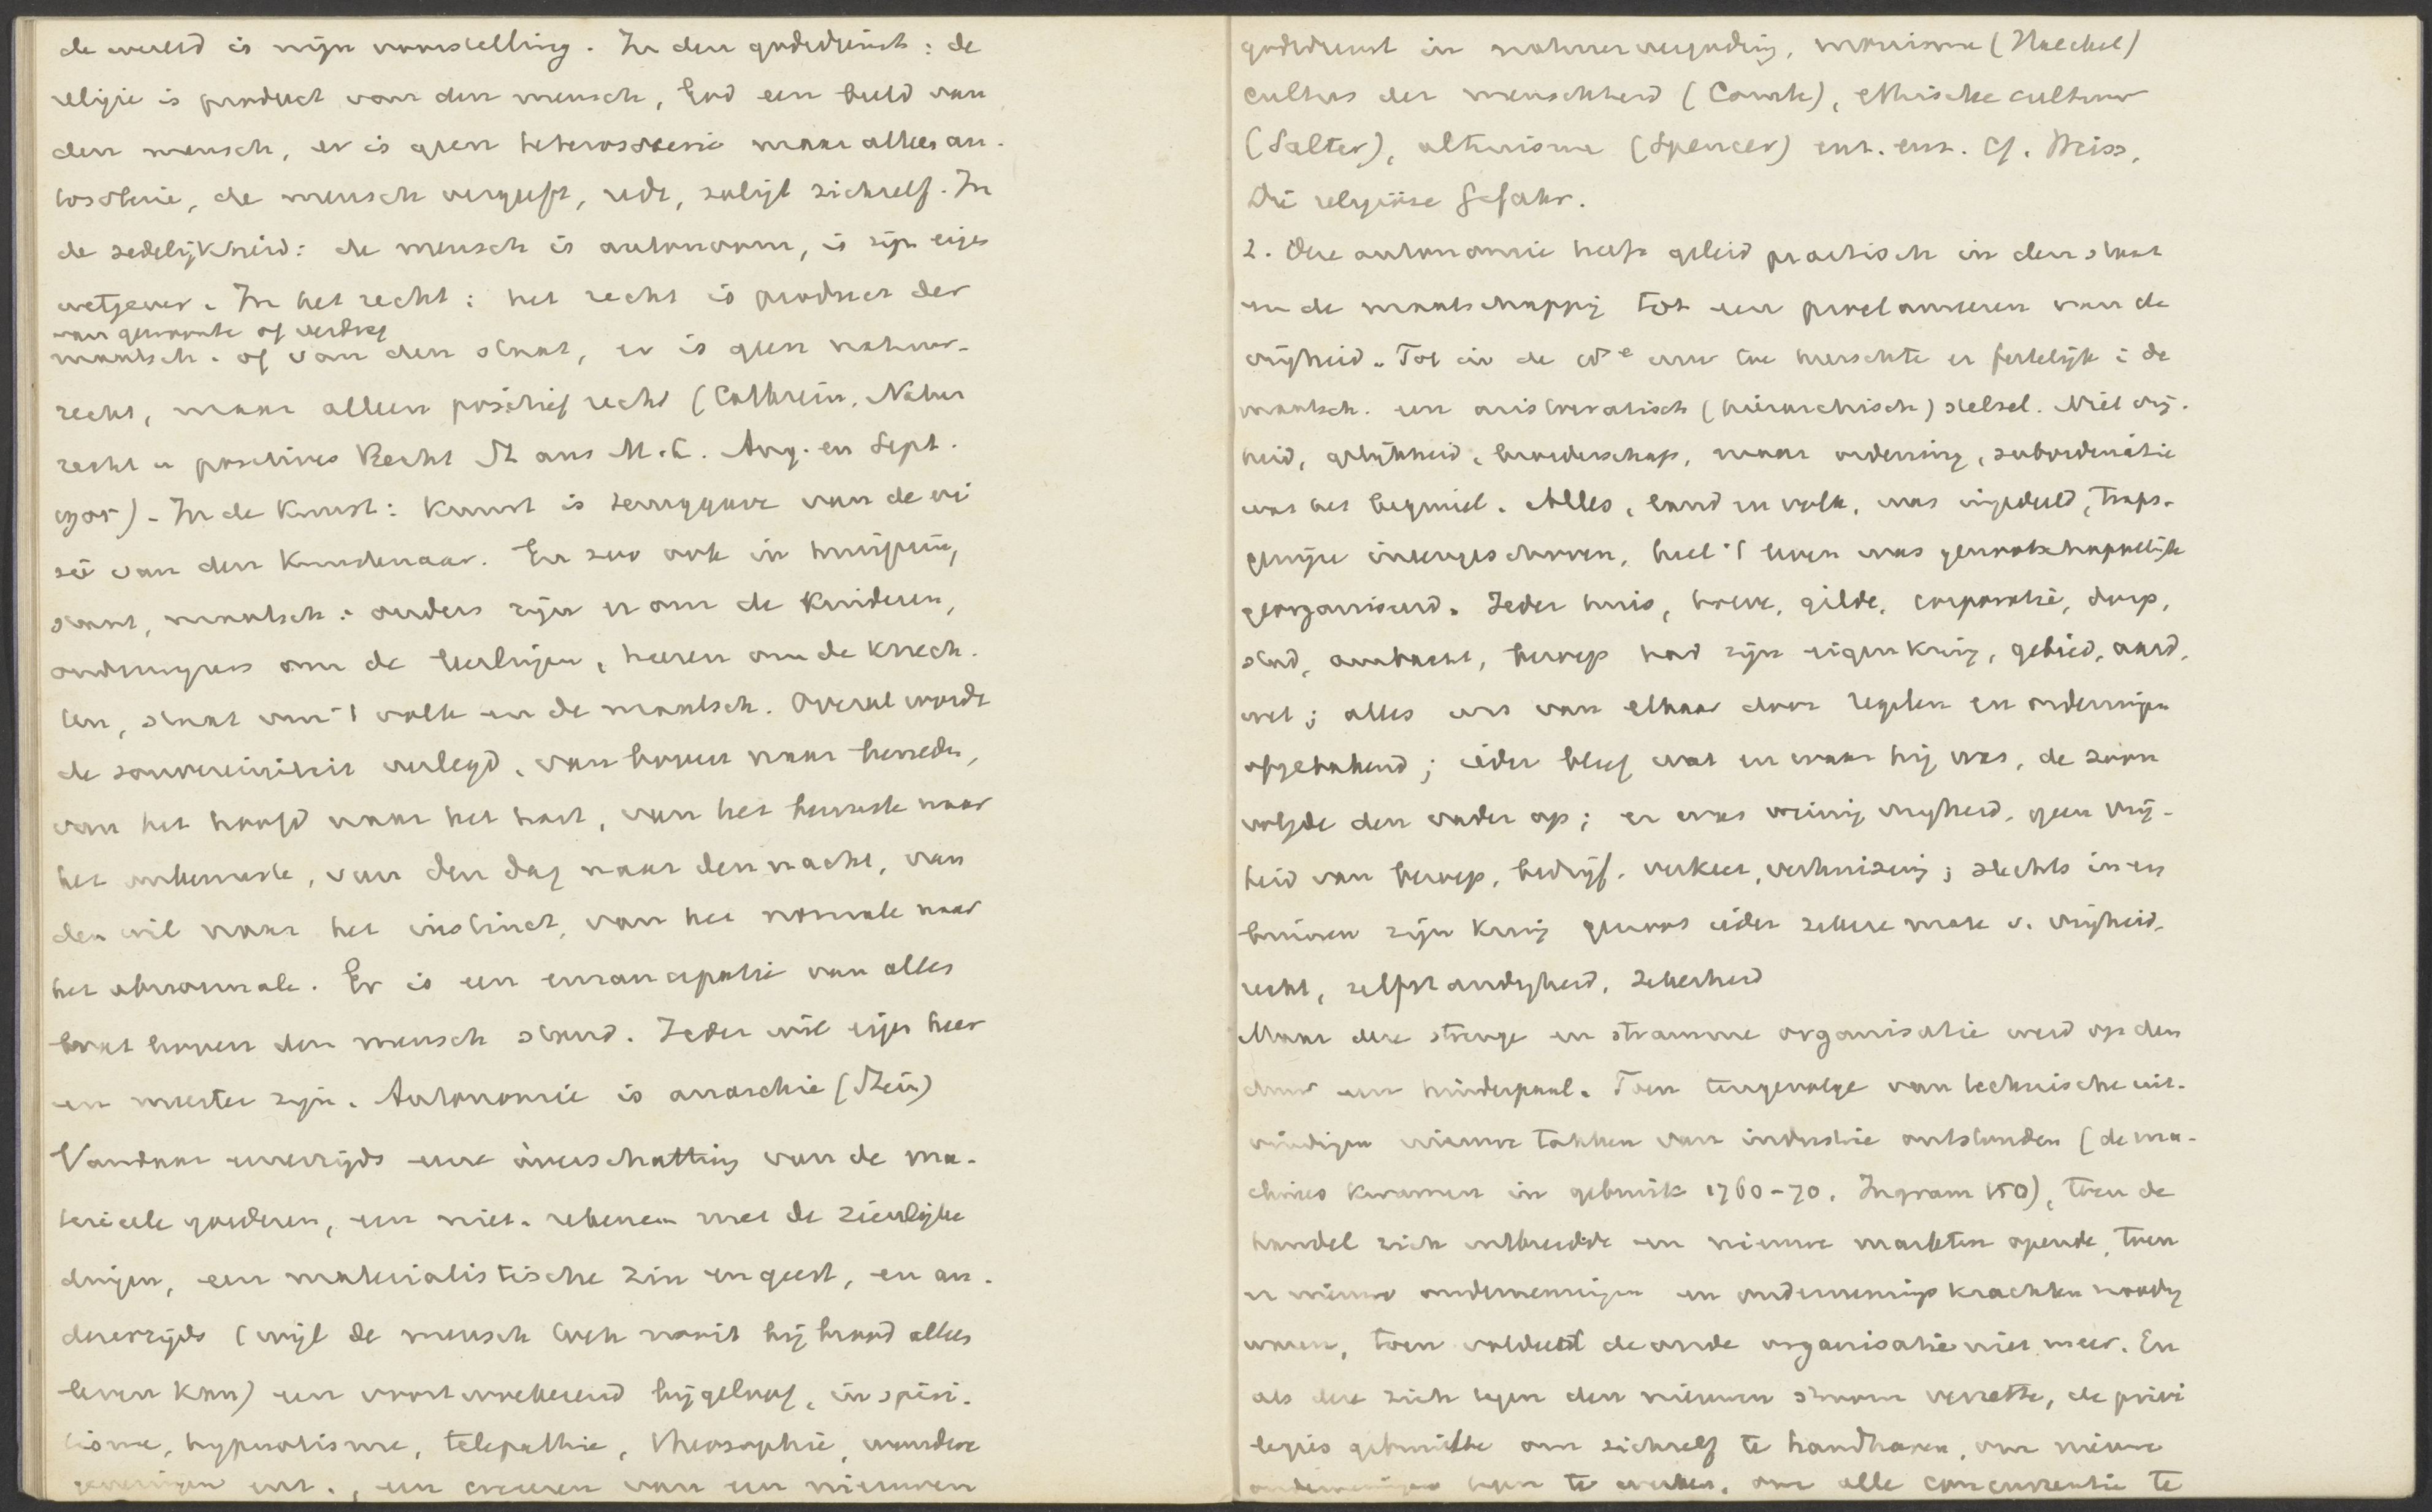 de wereld is mijn voorstelling. In den godsdienst: de
religie is product van den mensch, God een beeld van
den mensch, er is geen heterosoterie maar alleen au-
tosoterie, de mensch vergeeft, redt, zaligt zichzelf. In
de zedelijkheid: de mensch is autonoom, is zijn eigen
wetgever. In het recht: het recht is product der
van gewoonte of verdrag
maatsch. of van den staat, er is geen natuur-
recht, maar alleen positief recht (Cathrein, Natur
recht u positives Recht St aus M.L. Aug. en Sept.
1905). In de Kunst: Kunst is teruggave van de vi
sie van den Kunstenaar. En zoo ook in huisgezin,
staat, maatsch.: ouders zijn er om de Kinderen,
onderwijzers om de leerlingen, heeren om de Knech-
ten, staat om 't volk en de maatsch. Overal wordt
de souvereiniteit verlegd, van boven naar beneden,
van het hoofd naar het hart, van het bewuste naar
het onbewuste, van den dag naar den nacht, van
den wil naar het instinct, van het normale naar
het abnormale. Er is een emancipatie van alles
wat boven den mensch stond. Ieder wil eigen heer
en meester zijn. Autonomie is anarchie (Stein)
Vandaar eenerzijds eene overschatting van de ma-
terieele goederen, een niet-rekenen met de zienlijke
dingen, een materialistische zin en geest, en an-
derzijds (wijl de mensch toch nooit bij brood alleen
leven kan) een voortwoekerend bijgeloof, in spiri-
tisme, hypnotisme, telepathie, theosophie, wonder
genezingen enz., een creeeren van een nieuwen
godsdienst in natuurvergoding, monisme (Haeckel)
cultus der menschheid (Comte), ethische cultuur
(Salter), altruisme (Spencer) enz. enz. Cf. Weiss,
Die religiöse Gefahr.
2. Deze autonomie heeft geleid practisch in den staat
en de maatschappij tot een proclameren van de
vrijheid. Tot in de 18e eeuw toe heerschte er feitelijk i de
maatsch. een aristocratisch (hiërarchisch) stelsel. Niet vrij-
heid, gelijkheid, broederschap, maar ordening, subordinatie
was het beginsel. Alles, land en volk, was ingedeeld, traps-
gewijze ineengeschoven, heel 't leven was genootschappelijk
georganiseerd. Ieder huis, hoeve, gilde, corporatie, dorp,
stad, ambacht, beroep had zijn eigen kring, gebied, aard,
wet; alles was van elkaar door regelen en ordeningen
afgebakend; ieder bleef wat en waar hij was, de zoon
volgde den vader op; er was weinig vrijheid, geen vrij-
heid van beroep, bedrijf, verkeer, verhuizing; slechts in en
binnen zijn kring genoot ieder zekere mate v. vrijheid,
recht, zelfstandigheid, zekerheid
Maar deze strenge en stramme organisatie werd op den
duur een hinderpaal. Toen tengevolge van technische uit-
vindingen nieuwe takken van industrie ontstonden (de ma-
chines kwamen in gebruik 1760-70, Ingram 150), toen de
handel zich uitbreidde en nieuwe markten opende, toen
er nieuwe ondernemingen en ondernemingskrachten noodig
waren, toen voldeed de oude organisatie niet meer. En
als deze zich tegen den nieuwen stroom verzette, de privi
legies gebruikte om zichzelf te handhaven, om nieuwe
ondernemingen tegen te werken, om alle concurrentie te